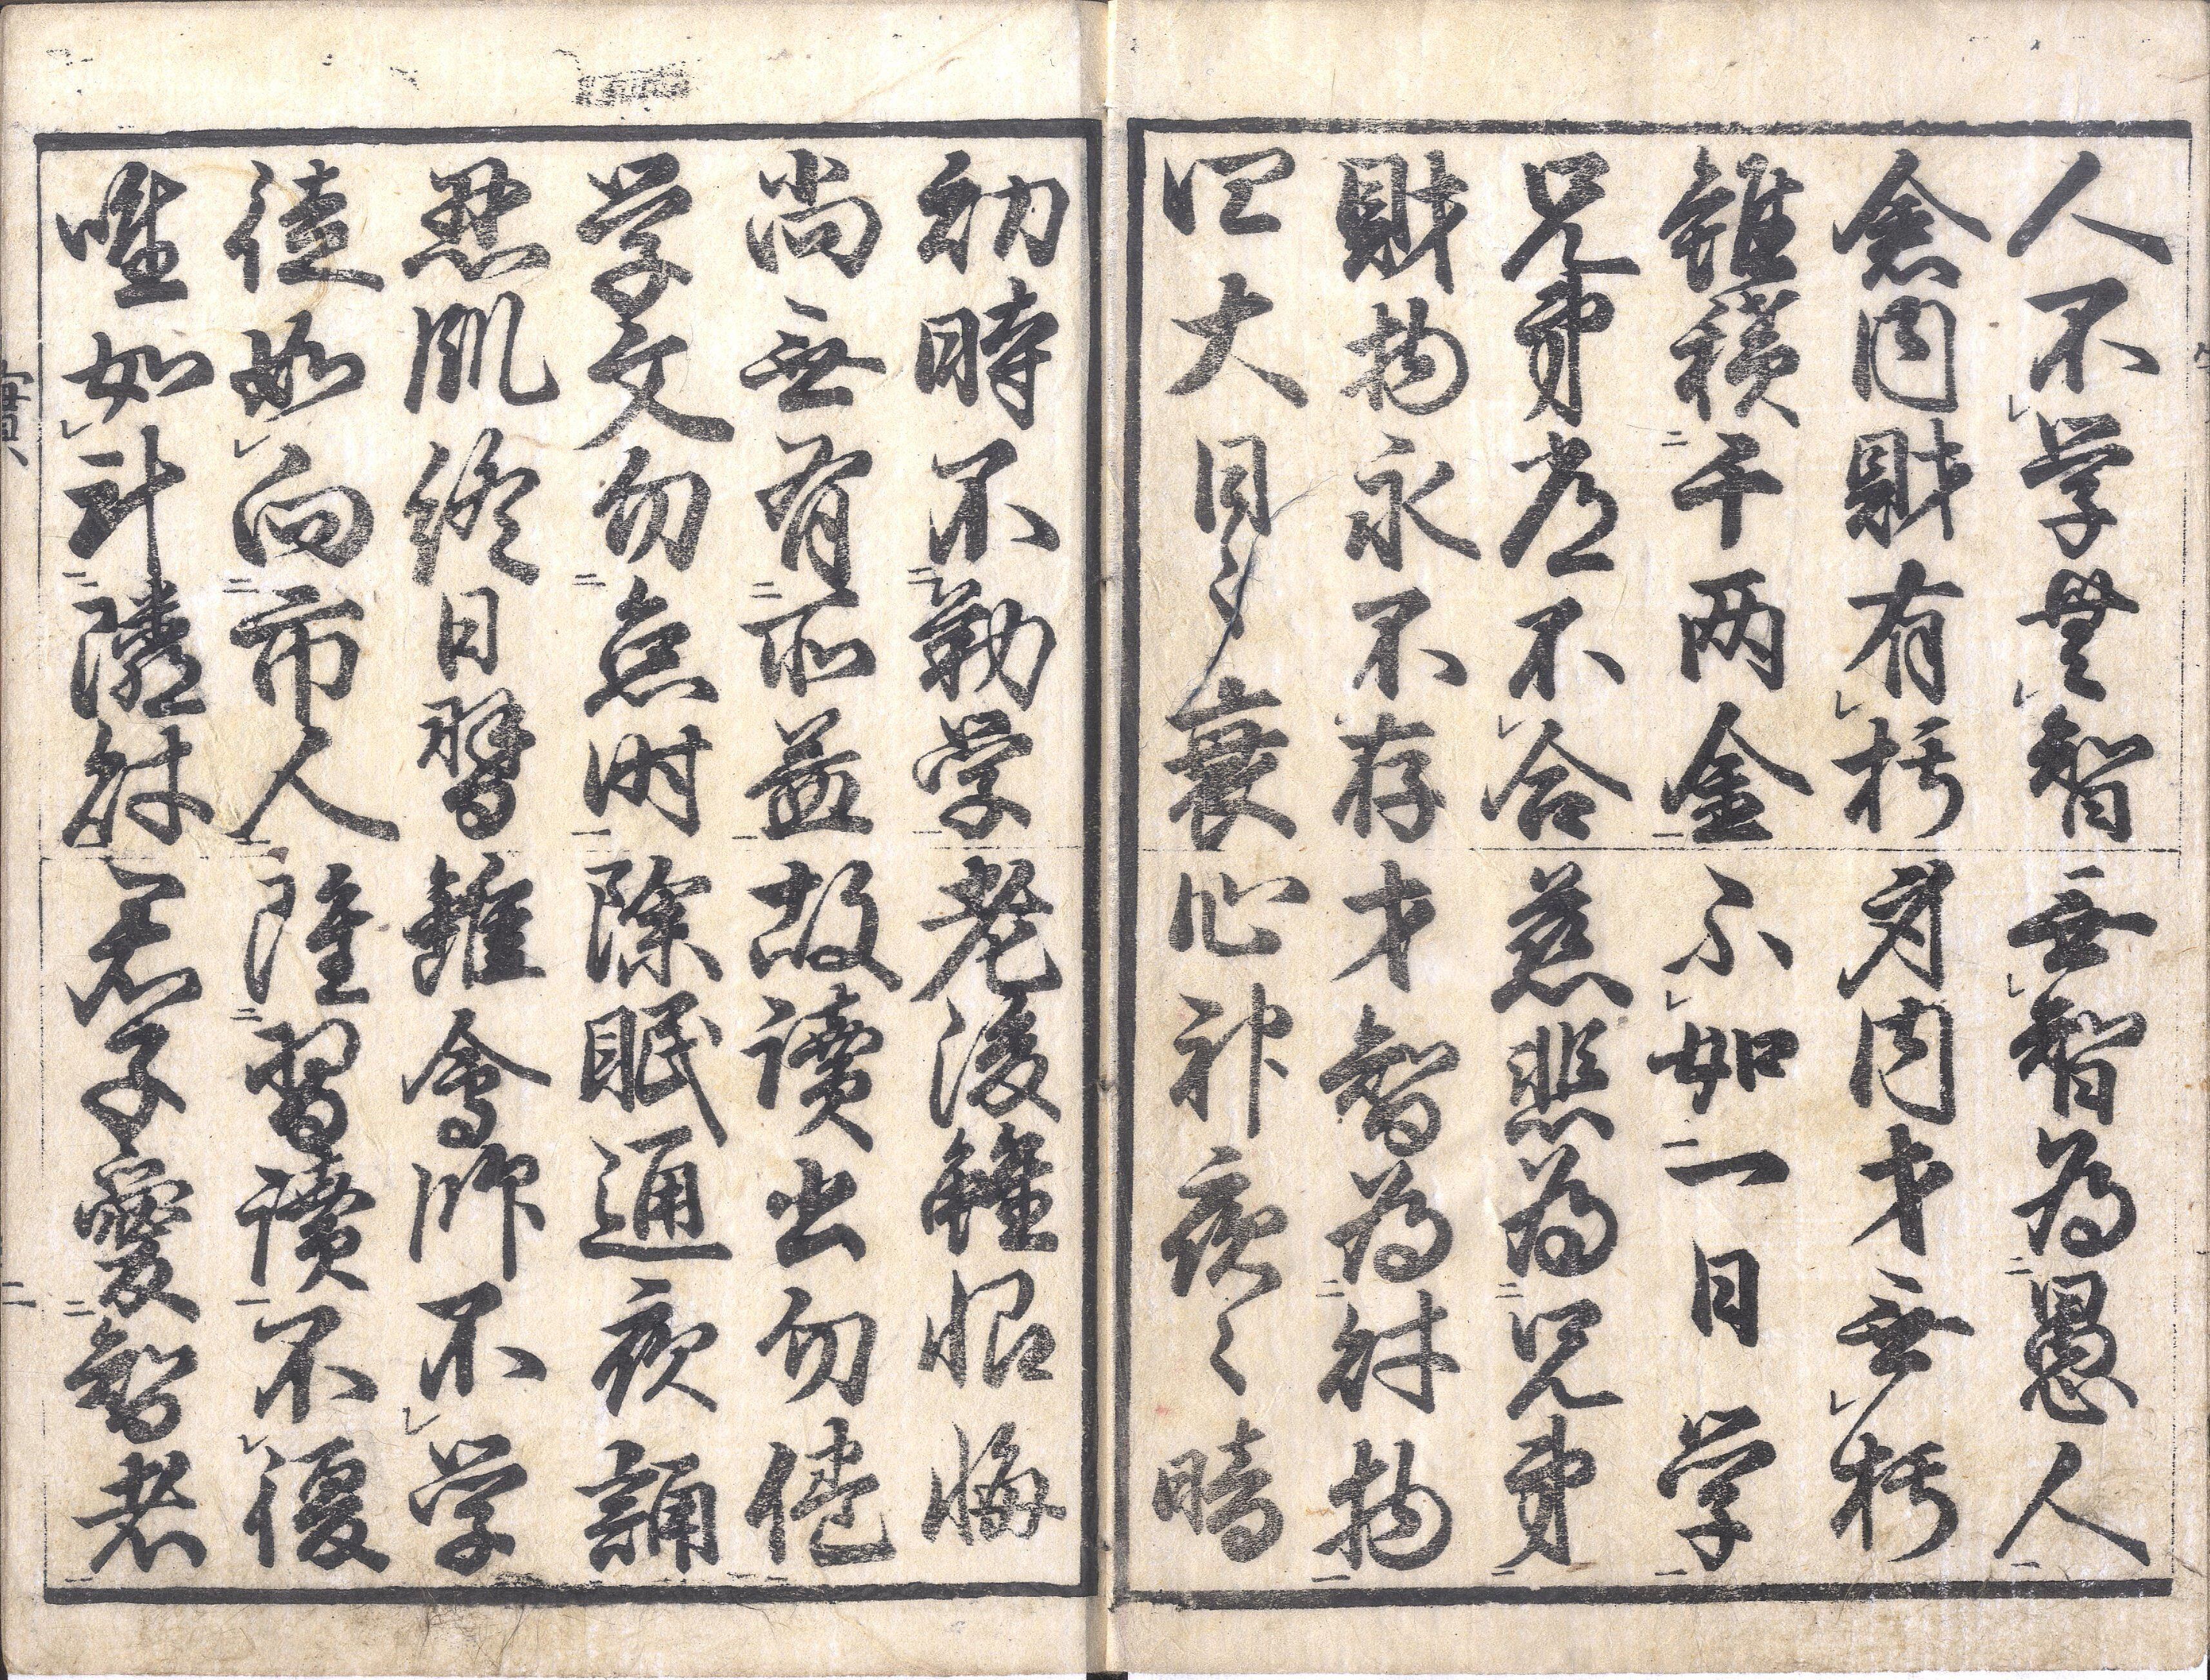 人不学無智無智為愚人
倉内財有朽身内才無朽
雖積千両金不如一日学
兄弟常不合慈悲為兄弟
財物永不存才智為財物
四大日〻衰心神夜〻暗
幼時不勤学老後雖恨悔
尚無有所益故讀書勿倦
学文勿怠時除眠通夜誦
忍飢終日習雖會師不学
徒如向市人雖習讀不復
唯如計隣財君子愛智者